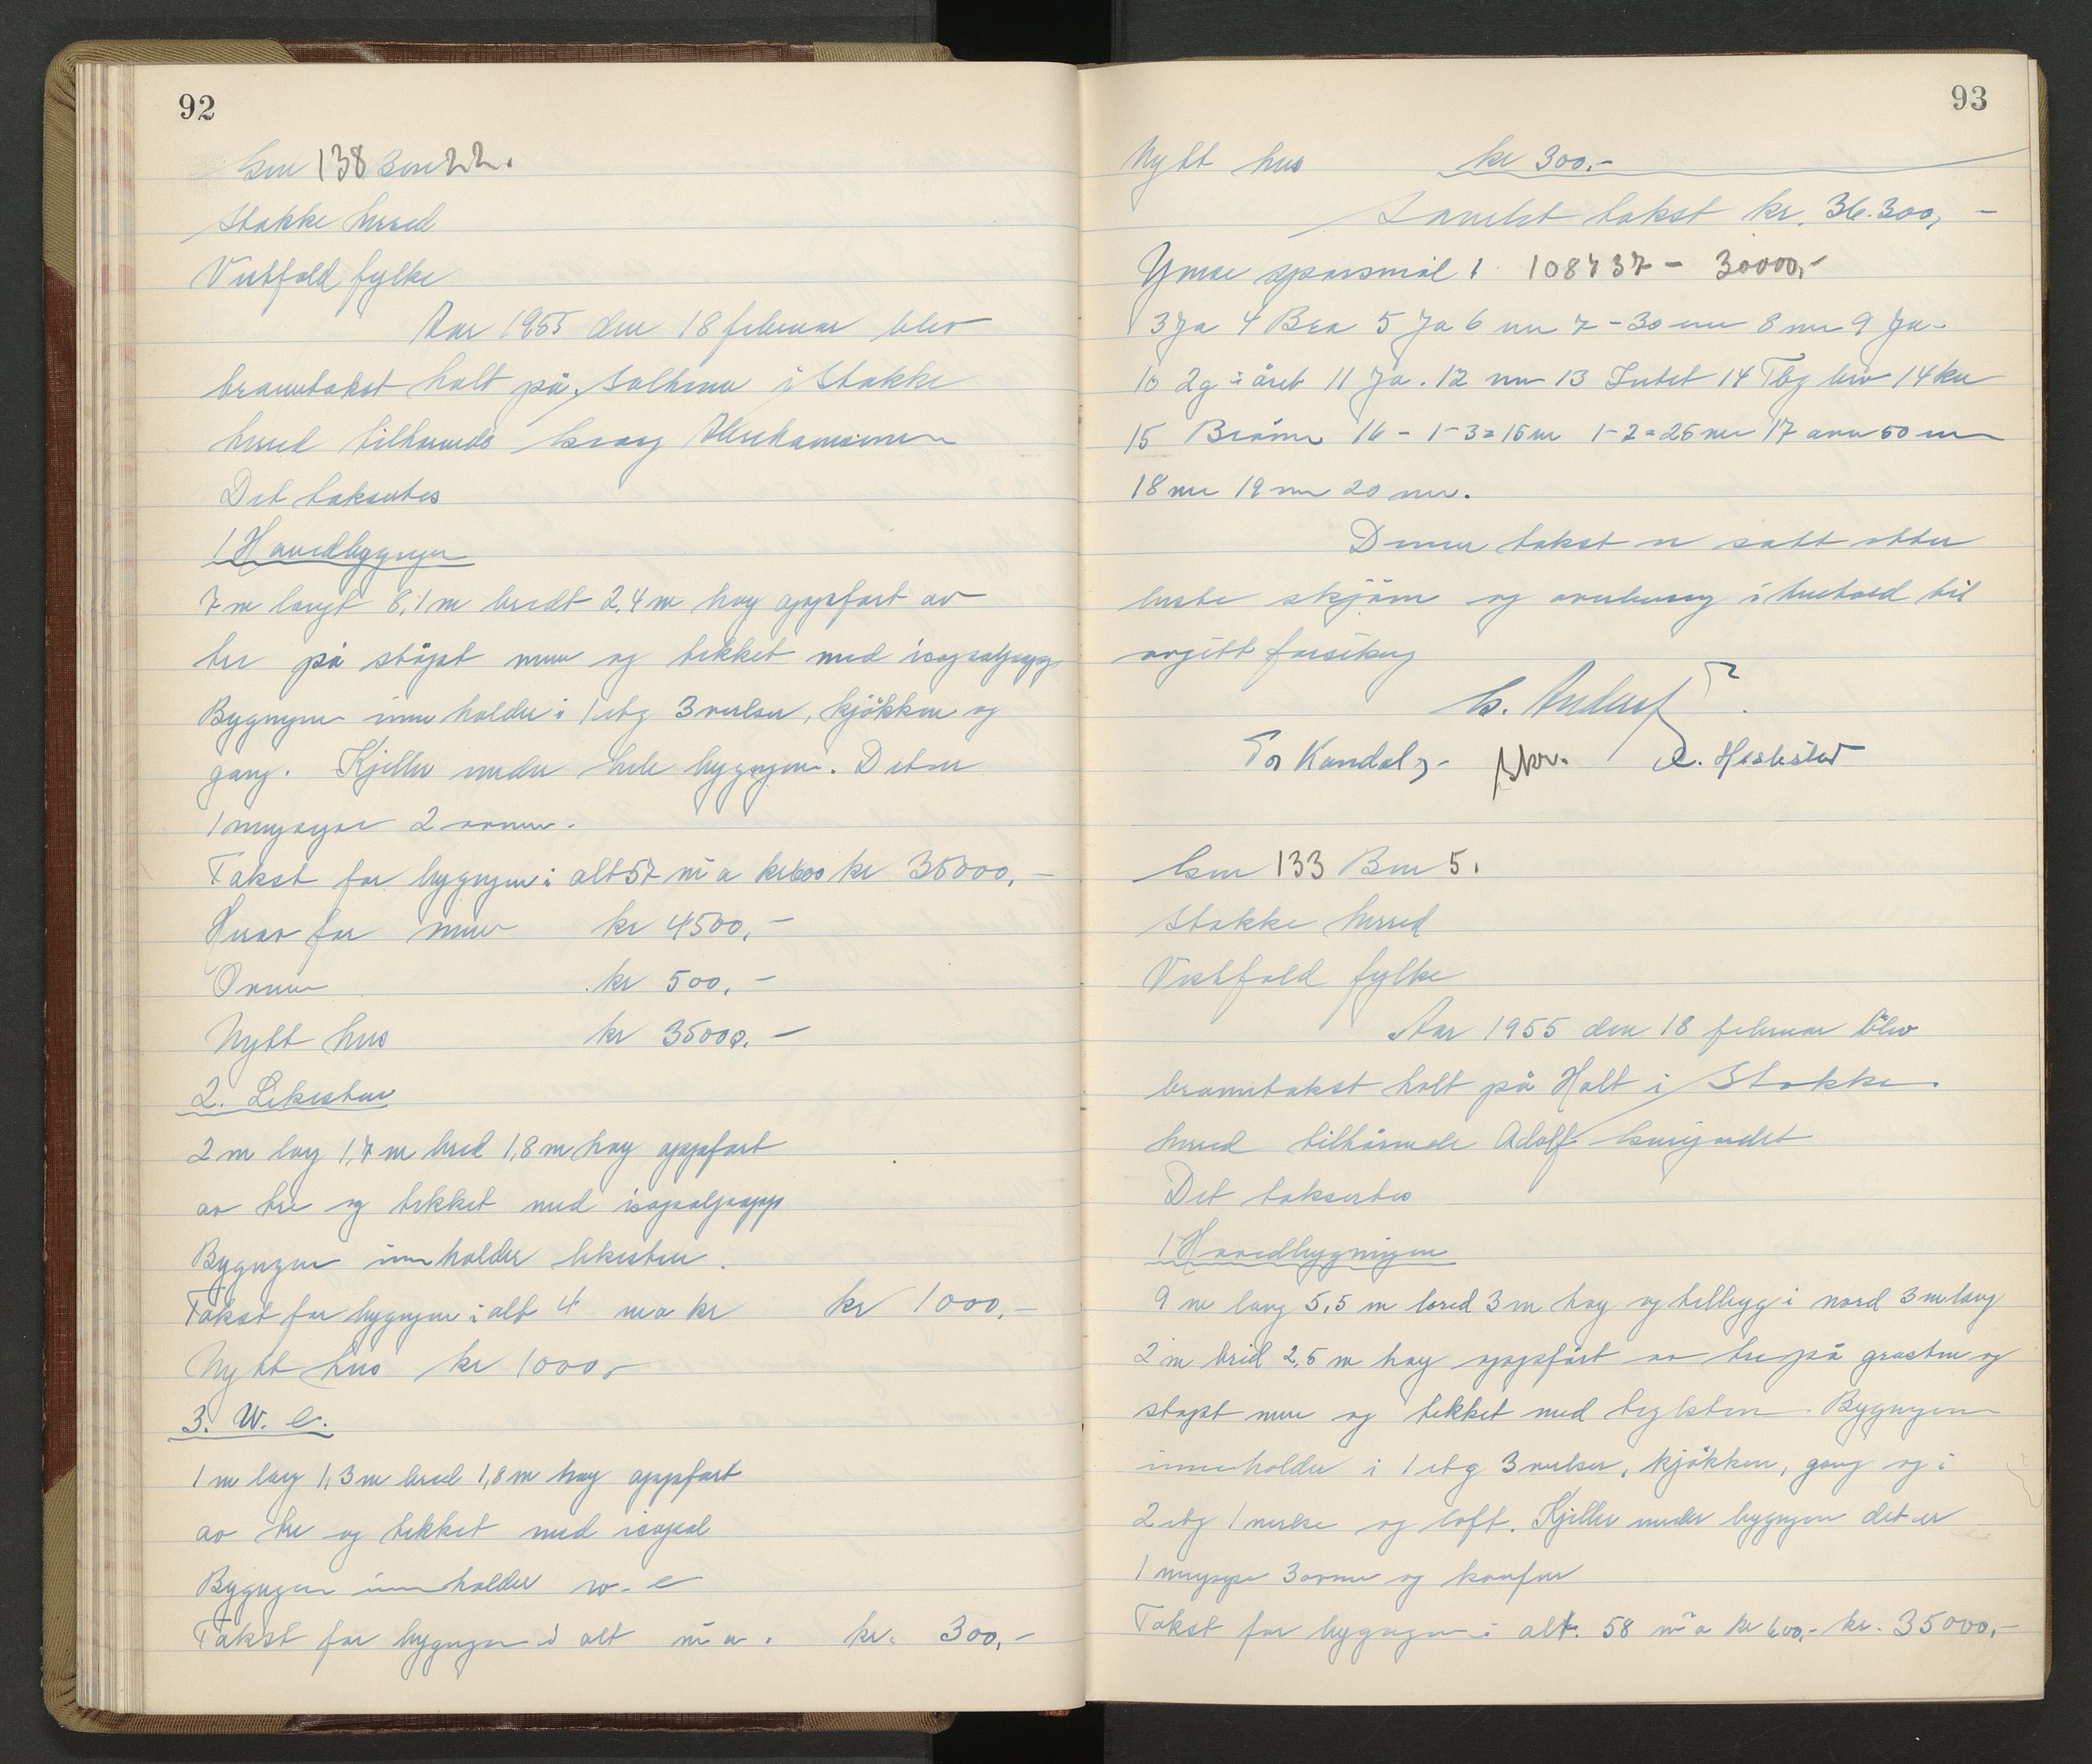 92
Gnr 138 Bnr 22.
Stokke herred
Vestfold fylke
Aar 1955 den 18 februar blev
branntakst holt på Solheim i Stokke
herred tilhørende Georg Abrahamsen
Det taksertes
1 Hovedbygngen
7 m langt 8,1 m bredt 2,4 m høy oppført av
tre på støpt mur og tekket med isopalpapp
Bygngen inneholder i 1 etg 3 verlser, kjøkken og
gang. Kjeller under hele bygngen. Det er
1 murpipe 2 ovner.
Takst for bygngen i alt 57 m² a kr 600 kr 35000,-
Herav for mur kr 4500,-
Ovner kr 500,-
Nytt hus kr 35000,-
2. Lekestue
2 m lang 1,7 m bred 1,8 m høy oppført
av tre og tekket med isopalpapp
Bygngen innholder lekestue.
Takst for bygngen i alt 4 m a kr kr 1000,-
Nytt hus kr 1000,-
3. W. C.
1 m lang 1,3 m bred 1,8 m høy oppført
av tre og tekket med isopal
Bygngen innholder w. c
Takst for bygngen i alt m² a. kr. 300,-
93
Nytt hus kr 300,-
Samlet takst kr. 36.300,-
Ymse spørsmål: 108737 - 30000,-
3 Ja 4 Bra 5 Ja 6 nei 7 - 30 cm 8 nei 9 Ja.
10 2 g i året 11 Ja. 12 nei 13 Intet 14 Tbg brv 14 km
15 Brønn 16 - 1-3=15 m 1-2=25 m 17 over 50 m
18 nei 19 nei 20 nei.
Denne takst er satt etter
beste skjønn og overbevisng i henhold til
avgitt forsikrng
G. Anders
Tor Kandal skr. A. Heslested
Gnr 133 Bnr 5.
Stokke herred
Vestfold fylke
Aar 1955 den 18 februar blev
branntakst holt på Holt i Stokke.
herred tilhørende Adolf
Det taksertes
1 Hovedbygningen
9 m lang 5,5 m bred 3 m høy og tilbygg i nord 3 m lang
2 m bred 2,5 m høy oppført av tre på gråsten og
støpt mur og tekket med teglsten. Bygngen
innholder i 1 etg 3 verlser, kjøkken, gang og i
2 etg 1 verlse og loft. Kjeller under bygngen det er
1 murpipe 3 ovner og komfur
Takst for bygngen i alt. 58 m² a kr 600,- kr. 35000,-